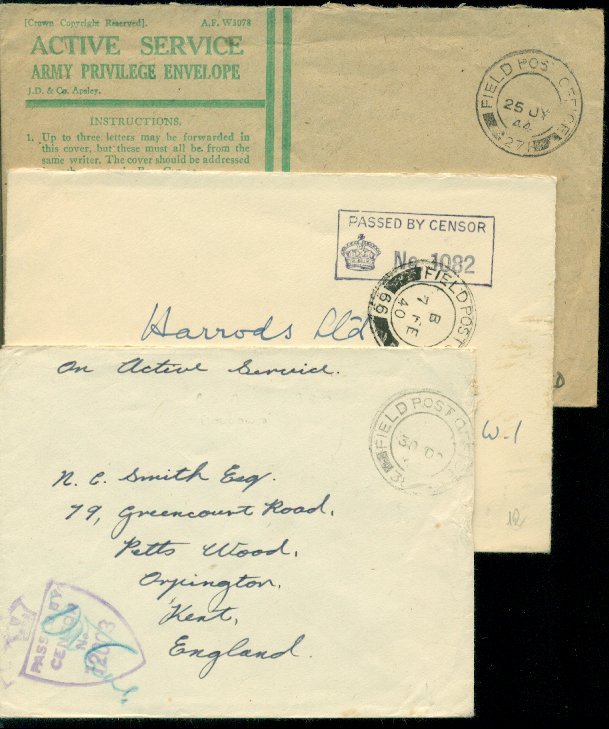 [Crown Copyright Reserved]. A.F. W3078
ACTIVE SERVICE
ARMY PRIVILEGE ENVELOPE
J.D. & Co. Apsley.
INSTRUCTIONS.
1. Up to three letters may be forwarded in
this cover, but these must all be from the
same writer. The cover should be addressed
FIELD POST OFFICE
25 JY
44
PASSED BY CENSOR
No. 1082
FIELD POST
B
7 FE
40
66
Harrods Ltd
W.1
On Active Service.
FIELD POST
30
N. C. Smith Esq.
79, Greencourt Road,
Petts Wood,
Orpington,
Kent,
England.
PASSED BY
CENSOR
No